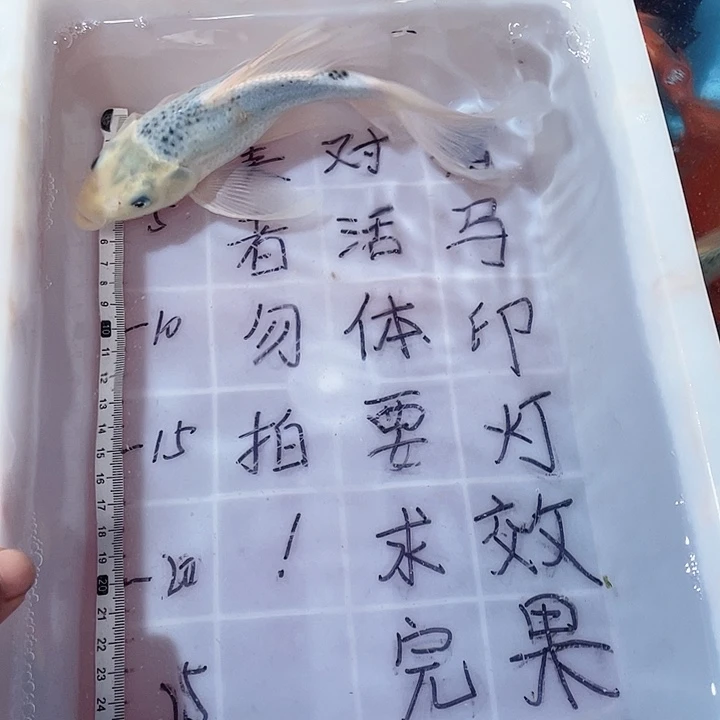 马印灯效果
对活体要求完
美者勿拍！
5
10
15
20
6
7
8
9
10
11
12
13
14
15
16
17
18
19
20
21
22
23
24